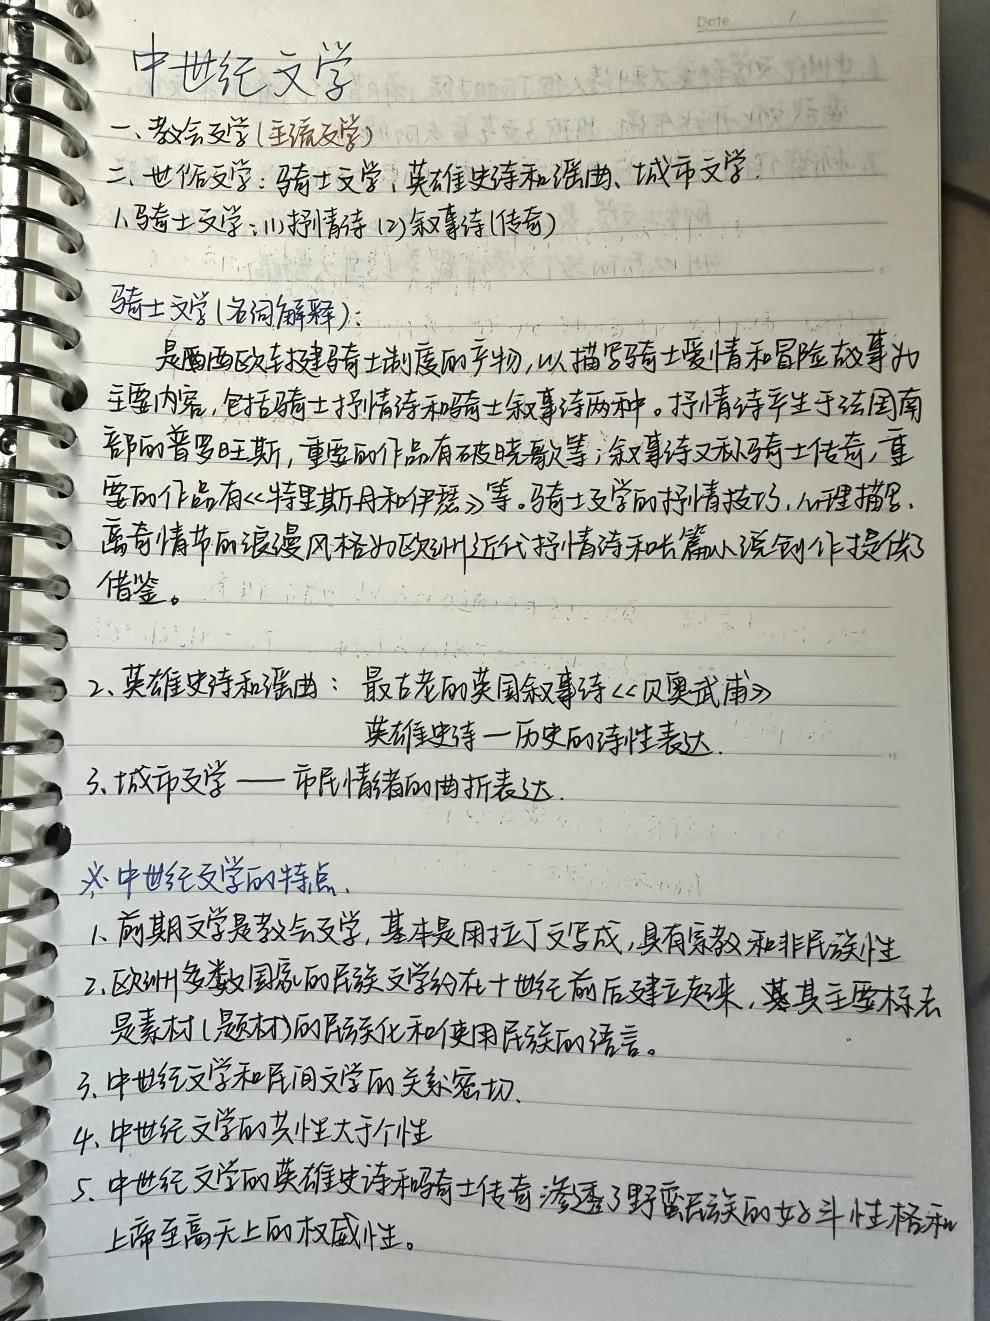 Date /
中世纪文学
一、教会文学(主流文学)
二、世俗文学：骑士文学、英雄史诗和谣曲、城市文学.
1.骑士文学：(1)抒情诗 (2)叙事诗(传奇)
骑士文学(名词解释)：
是西欧封建骑士制度的产物,以描写骑士爱情和冒险故事为
主要内容,包括骑士抒情诗和骑士叙事诗两种。抒情诗产生于法国南
部的普罗旺斯,重要的作品有破晓歌等;叙事诗又称骑士传奇,重
要的作品有《特里斯丹和伊瑟》等。骑士文学的抒情技巧,心理描写、
离奇情节的浪漫风格为欧洲近代抒情诗和长篇小说创作提供了
借鉴。
2、英雄史诗和谣曲： 最古老的英国叙事诗《贝奥武甫》
英雄史诗—历史的诗性表达.
3、城市文学——市民情绪的曲折表达.
※ 中世纪文学的特点.
1、前期文学是教会文学,基本是用拉丁文写成,具有宗教和非民族性
2、欧洲多数国家的民族文学约在十世纪前后建立起来,其主要标志
是素材(题材)的民族化和使用民族的语言。
3、中世纪文学和民间文学的关系密切.
4、中世纪文学的共性大于个性
5、中世纪文学的英雄史诗和骑士传奇渗透了野蛮民族的好斗性格和
上帝至高无上的权威性。